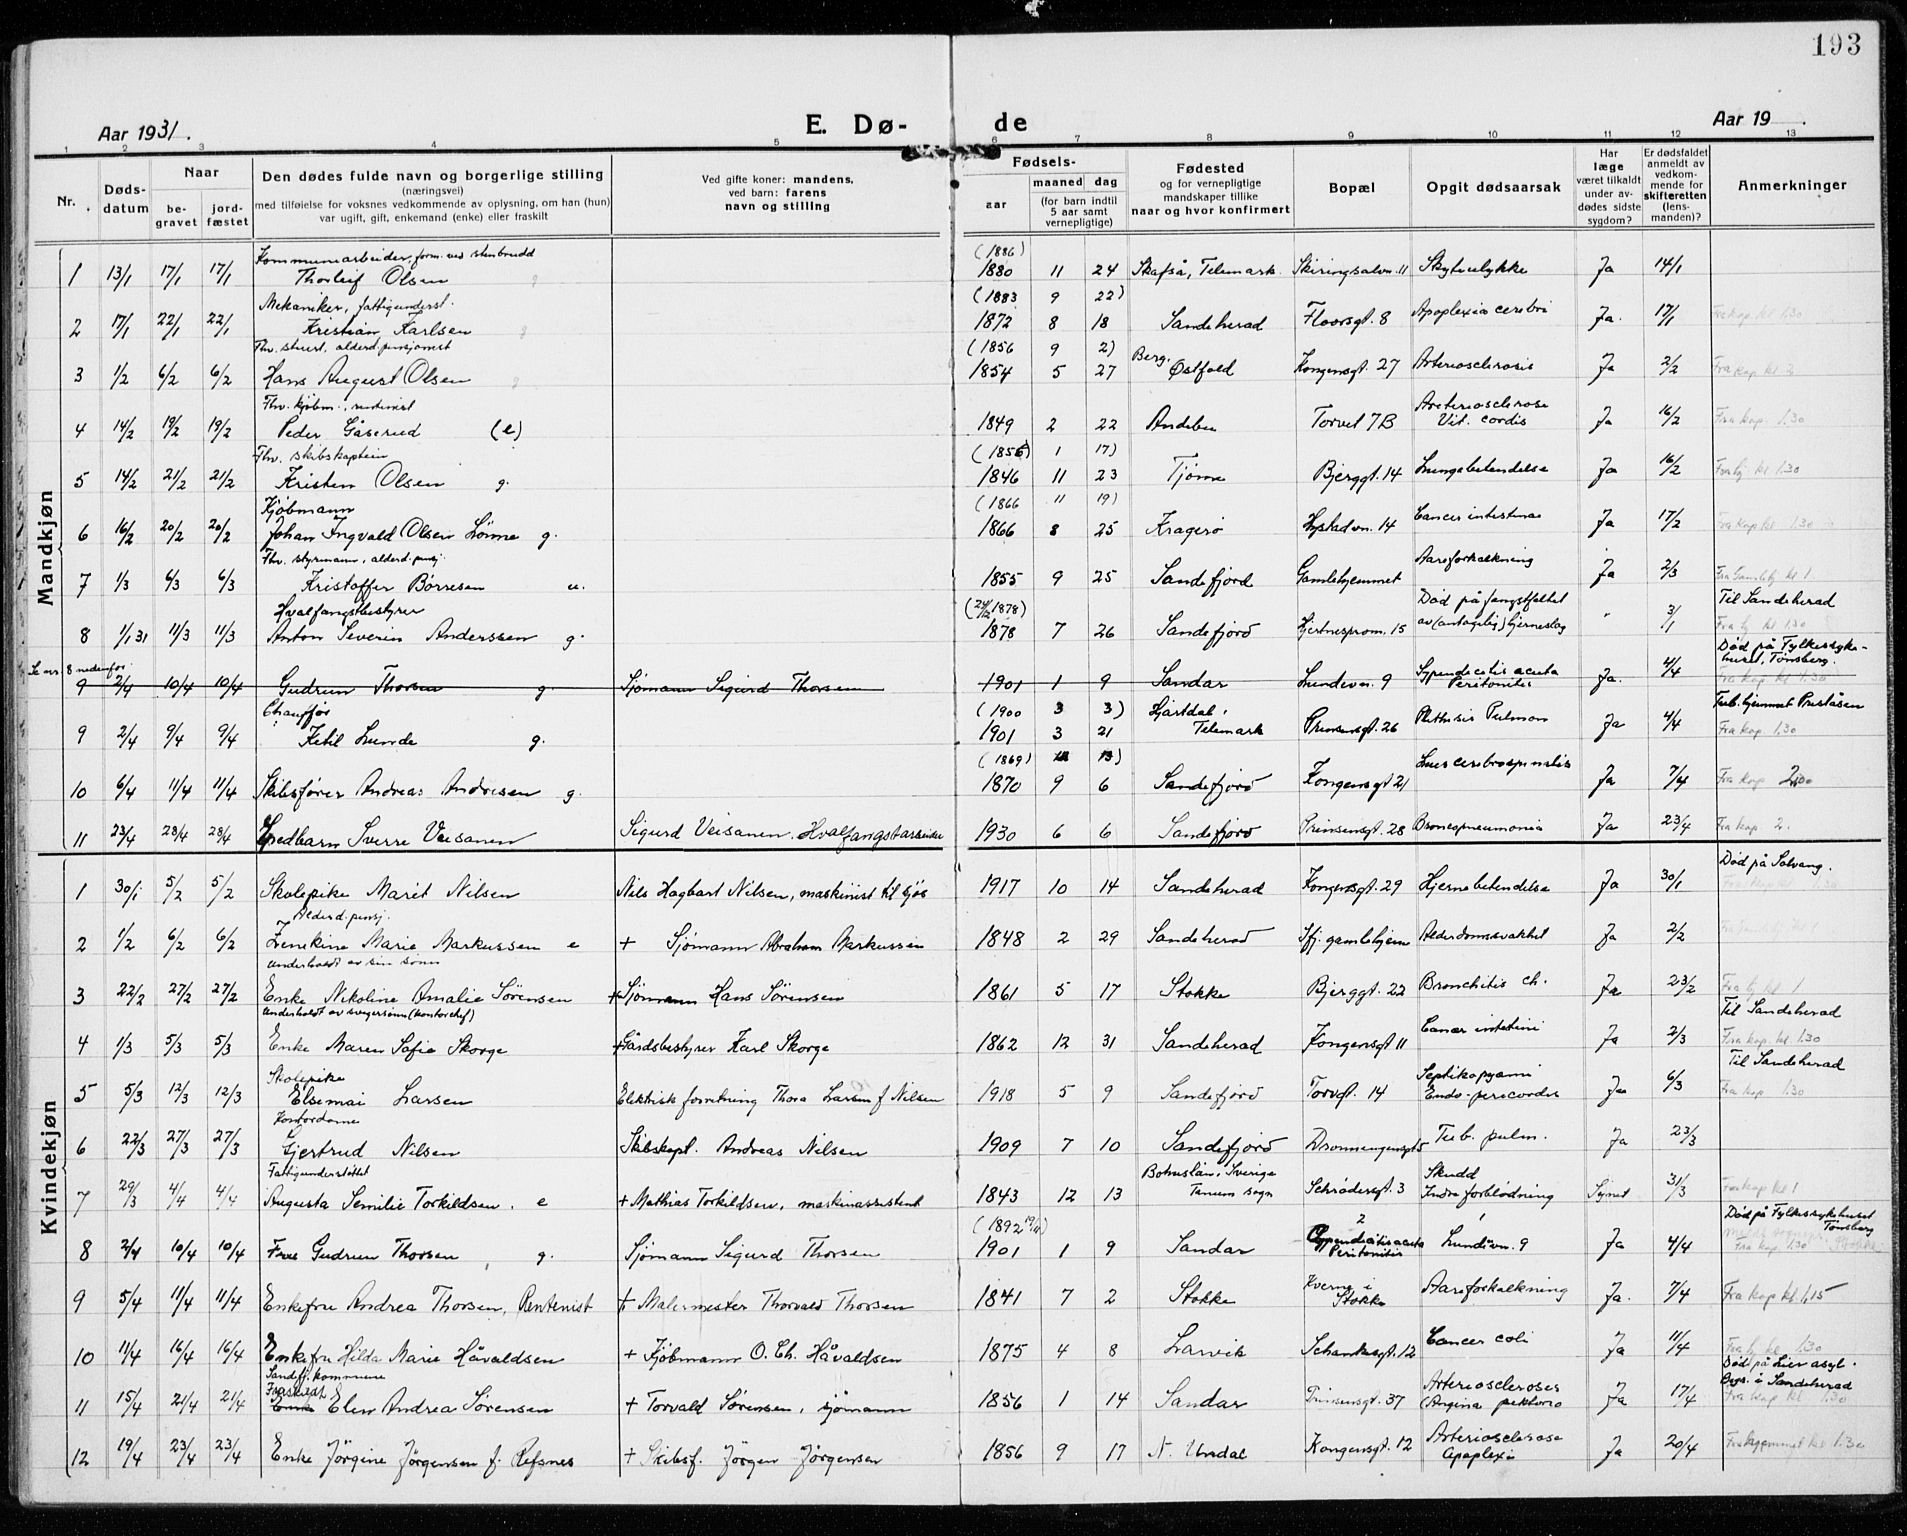 193
Aar 1931.
E. Dø-de
Aar 19 .
1 2 3 4 5 6 7 8 9 10 11 12 13
Nr.
Døds-datum
Naar
be-gravet
jord-fæstet
Den dødes fulde navn og borgerlige stilling
(næringsvei)
med tilføielse for voksnes vedkommende av oplysning, om han (hun)
var ugift, gift, enkemand (enke) eller fraskilt
Ved gifte koner: mandens,
ved barn: farens
navn og stilling
Fødsels-
aar
maaned dag
(for barn indtil
5 aar samt
vernepligtige)
Fødested
og for vernepligtige
mandskaper tillike
naar og hvor konfirmert
Bopæl
Opgit dødsaarsak
Har
læge
været tilkaldt
under av-
dødes sidste
sygdom?
Er dødsfaldet
anmeldt av
vedkom-
mende for
skifteretten
(lens-
manden)?
Anmerkninger
Mandkjøn
Kommunearbeider, form. ved stenbrudd (1886)
1 13/1 17/1 17/1 Thorleif Olsen 1880 11 24 Skafså, Telemark Skiringsalvn. 11 Skyteulykke Ja 14/1
Mekaniker, fattigunderst. (1883 9 22)
2 17/1 22/1 22/1 Kristian Karlsen 1872 8 18 Sandeherad Floorsgt. 8 Apoplexia cerebri Ja. 17/1 Fra kap. kl 1.30
Fhv. stuert, alderd. pensjonist (1856 9 2)
3 1/2 6/2 6/2 Hans August Olsen 1854 5 27 Berg, Østfold Kongensgt. 27 Arteriosclerosis Ja 2/2 Fra kap. kl. 2
Fhv. kjøbm., rentenist
4 14/2 19/2 19/2 Peder Gåserud (e) 1849 2 22 Andebu Torvet 7B Areteriosclerose Vit. cordis Ja 16/2 Fra kap. 1.30
Fhv. skibskaptein (1856) 1 17)
5 14/2 21/2 21/2 Kristen Olsen g. 1846 11 23 Tjøme Bjerggt. 14 Lungebetendelse Ja 16/2 Fra hj kl 1.30
Kjøbmann (1866 11 19)
6 16/2 20/2 20/2 Johan Ingvald Olsen Lønne g. 1866 8 25 Kragerø Hystadvn. 14 Cancer intestinae Ja 17/2 Fra kap kl 1.30
Fhv. styrmann, alderd. pensj.
7 1/3 6/3 6/3 Kristoffer Børresen u. 1855 9 25 Sandefjord Gamlehjemmet Aareforkalkning Ja 2/3 Fra Gamlehj kl 1.
Hvalfangstbestyrer (24/12 1878)
8 1/1 31 11/3 11/3 Anton Severin Anderssen g. 1878 7 26 Sandefjord Hjertnesprom. 15 Død på fangstfeltet av (antagelig) hjerneslag " 3/1 Til Sandeherad Fra hj kl 1.30
Se nr. 8 nedenfor.
9 2/4 10/4 10/4 Gudrun Thorsen g. Sjømann Sigurd Thorsen 1901 1 9 Sandar Lundevn. 9 Appendecitis acuta Peritonitis Ja. 4/4 Død på Fylkessyke-huset, Tønsberg. Fra kap. kl 1.30
Chauffør (1900 3 3)
9 2/4 9/4 9/4 Ketil Lunde g. 1901 3 21 Hjartdal, Telemark Prinsensgt. 26 Phthisis Pulmon Ja 4/4 Tub. hjemmet Preståsen Fra kap. 1.30
(1869) 12 13)
10 6/4 11/4 11/4 Skibsfører Andreas Andresen g. 1870 9 6 Sandefjord Kongensgt 21 Lues cerebrospinalis Ja 7/4 Fra kap 2.00
11 23/4 28/4 28/4 Spedbarn Sverre Veisanen Sigurd Veisanen, Hvalfangstarbeider 1930 6 6 Sandefjord Prinsensgt. 28 Broncopneumonia Ja 23/4 Fra kap 2.
Kvindekjøn
1 30/1 5/2 5/2 Skolepike Marit Nilsen Nils Hagbart Nilsen, maskinist til sjøs 1917 10 14 Sandeherad Kongensgt. 29 Hjernebetendelse Ja 30/1 Død på Solvang.
Alderd. pensj.
2 1/2 6/2 6/2 Zenekine Marie Markussen e + Sjømann Abraham Markussen 1848 2 29 Sandeherad Sfj. gamlehjem Alderdomssvakhet Ja 2/2
Underholdt av sin sønn
3 22/2 27/2 27/2 Enke Nikoline Amalie Sørensen + Sjømann Hans Sørensen 1861 5 17 Stokke Bjerggt. 22 Bronchitis ch. Ja 23/2 Fra hj kl 1
Underholdt av svigersønn (kontorchef)
4 1/3 5/3 5/3 Enke Maren Sofie Skorge + Gårdsbestyrer Karl Skorge 1862 12 31 Sandeherad Kongensgt 11 Cancer intetini Ja 2/3 Til Sandeherad Fra kap. kl 1.30
Skolepike
5 5/3 12/3 12/3 Elsemai Larsen Elektrisk forretning Thora Larsen f Nilsen 1918 5 9 Sandefjord Torvgt. 14 Septikopyami Endo-pericardit Ja 6/3 Til Sandeherad Fra kap 1.30
Kontordame
6 22/3 27/3 27/3 Gjertrud Nilsen Skibskapt. Andreas Nilsen 1909 7 10 Sandefjord Dronningensgt 5 Tub. pulm. Ja 23/3
Fattigunderstøttet
7 29/3 4/4 4/4 Augusta Semilie Torkildsen. e + Mathias Torkildsen, maskinassistent 1843 12 13 Bohuslän, Sverige Tanum sogn Schrådersgt. 3 Skudd Indre forblødning Synet 31/3 Fra kap kl 1
(1892 19/11)
8 2/4 10/4 10/4 Frue Gudrun Thorsen g. Sjømann Sigurd Thorsen 1901 1 9 Sandar 2 Appendicitis acuta Peritonitis 1 Lundevn. 9 Ja 4/4 Død på Fylkessykehuset Tønsberg Fra kap. 1.30
9 5/4 11/4 11/4 Enkefru Andrea Thorsen, Rentenist + Malermester Thorvald Thorsen 1841 7 2 Stokke Kverne i Stokke Aareforkalkning Ja. 7/4 Fra kap kl 1,15
10 11/4 16/4 16/4 Enkefru Hilda Marie Håvaldsen + Kjøbmann O. Ch. Håvaldsen 1875 4 8 Larvik Schanckesgt. 12 Cancer coli Ja 11/4 Fra hj kl 1.30
Sandefj. kommune
Fraskilt
11 15/4 21/4 21/4 Enke Elen Andrea Sørensen + Torvald Sørensen, sjømann 1856 1 14 Sandar Prinsensgt. 37 Arteriosclerosis (Angina pektoris Ja 17/4 Død på Lier asyl. Begr. i Sandeherad Fra kap kl 1.30
12 19/4 23/4 23/4 Enke Jørgine Jørgensen f. Refsnes + Skibsf. Jørgen Jørgensen 1856 9 17 N. Undal Kongensgt. 12 Arteriosclerose Apoplexi Ja 20/4 Fra hjemmet kl 1.30